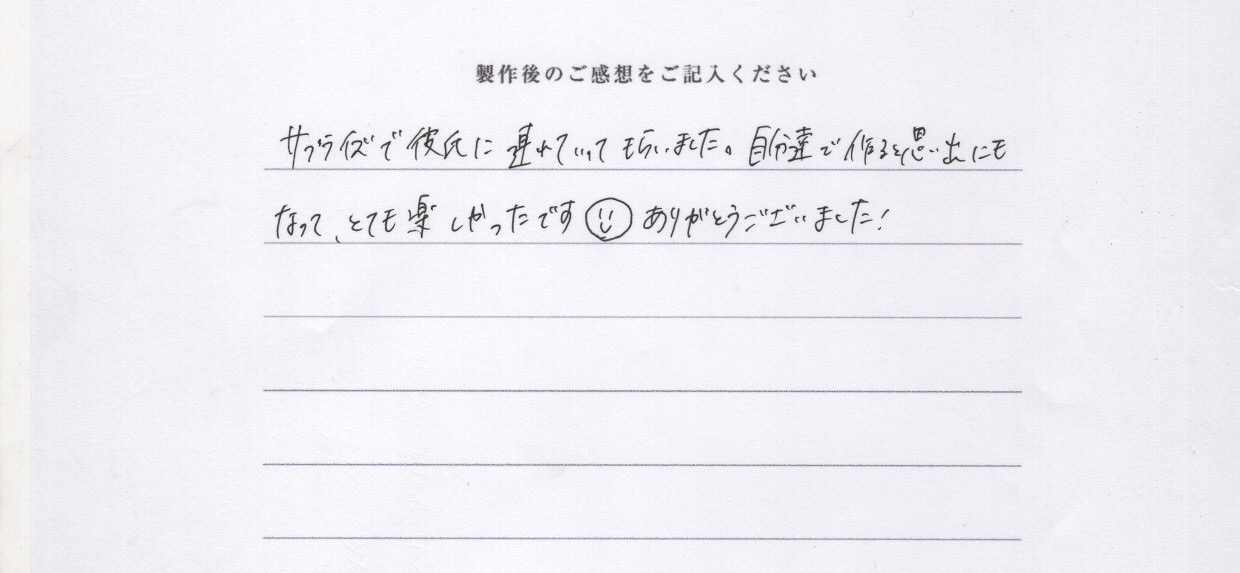 製作後のご感想をご記入ください
サプライズで彼氏に連れていってもらいました。自分達で作ると思い出にも
なって、とても楽しかったです☺ありがとうございました!